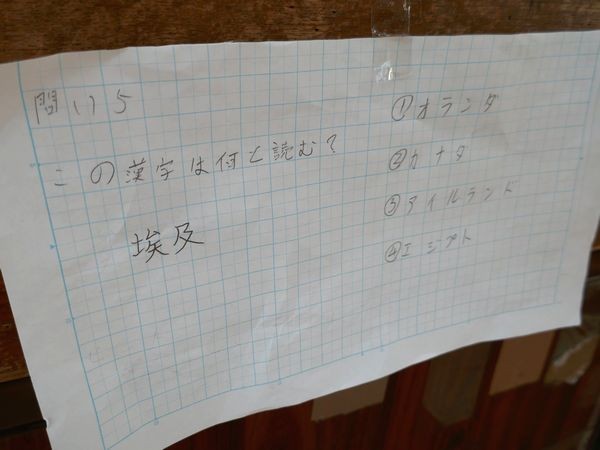 問い5
この漢字は何と読む?
埃及
①オランダ
②カナダ
③アイルランド
④エジプト